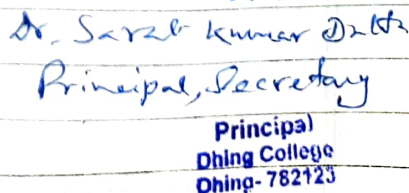 Dr. Sarat Kumar Dutta
Principal, Secretary
Principal
Dhing College
Dhing- 782123